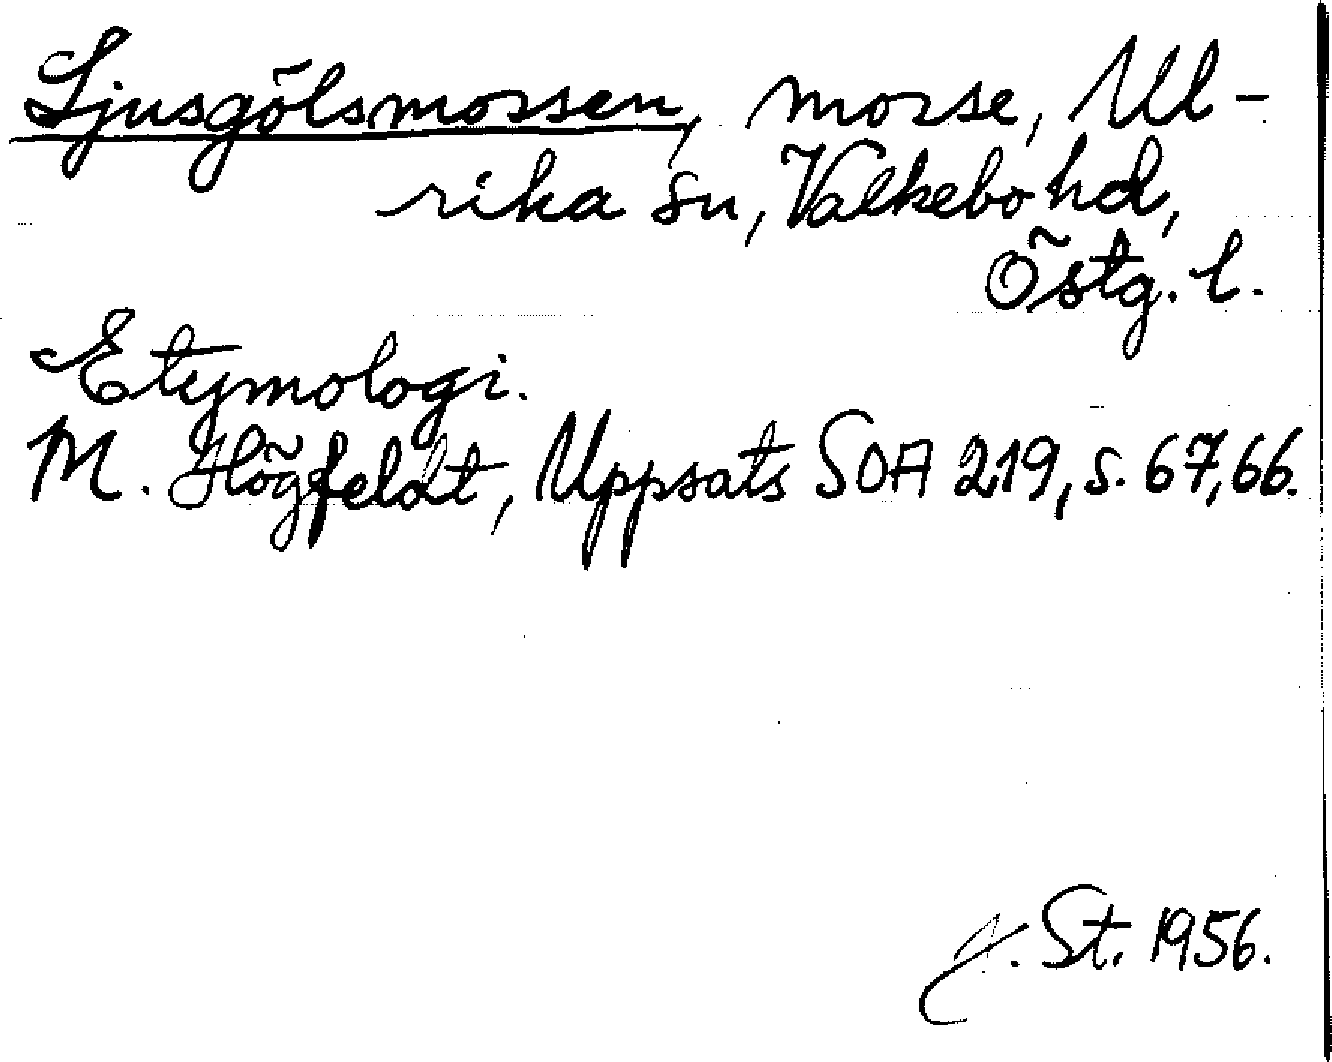 Ljusgölsmossen, mosse, Ul-
rika sn, Valkebo hd,
Östg. l.
Etymologi.
M. Högfeldt, Uppsats SOA 219, s. 67, 66.
St. 1956.